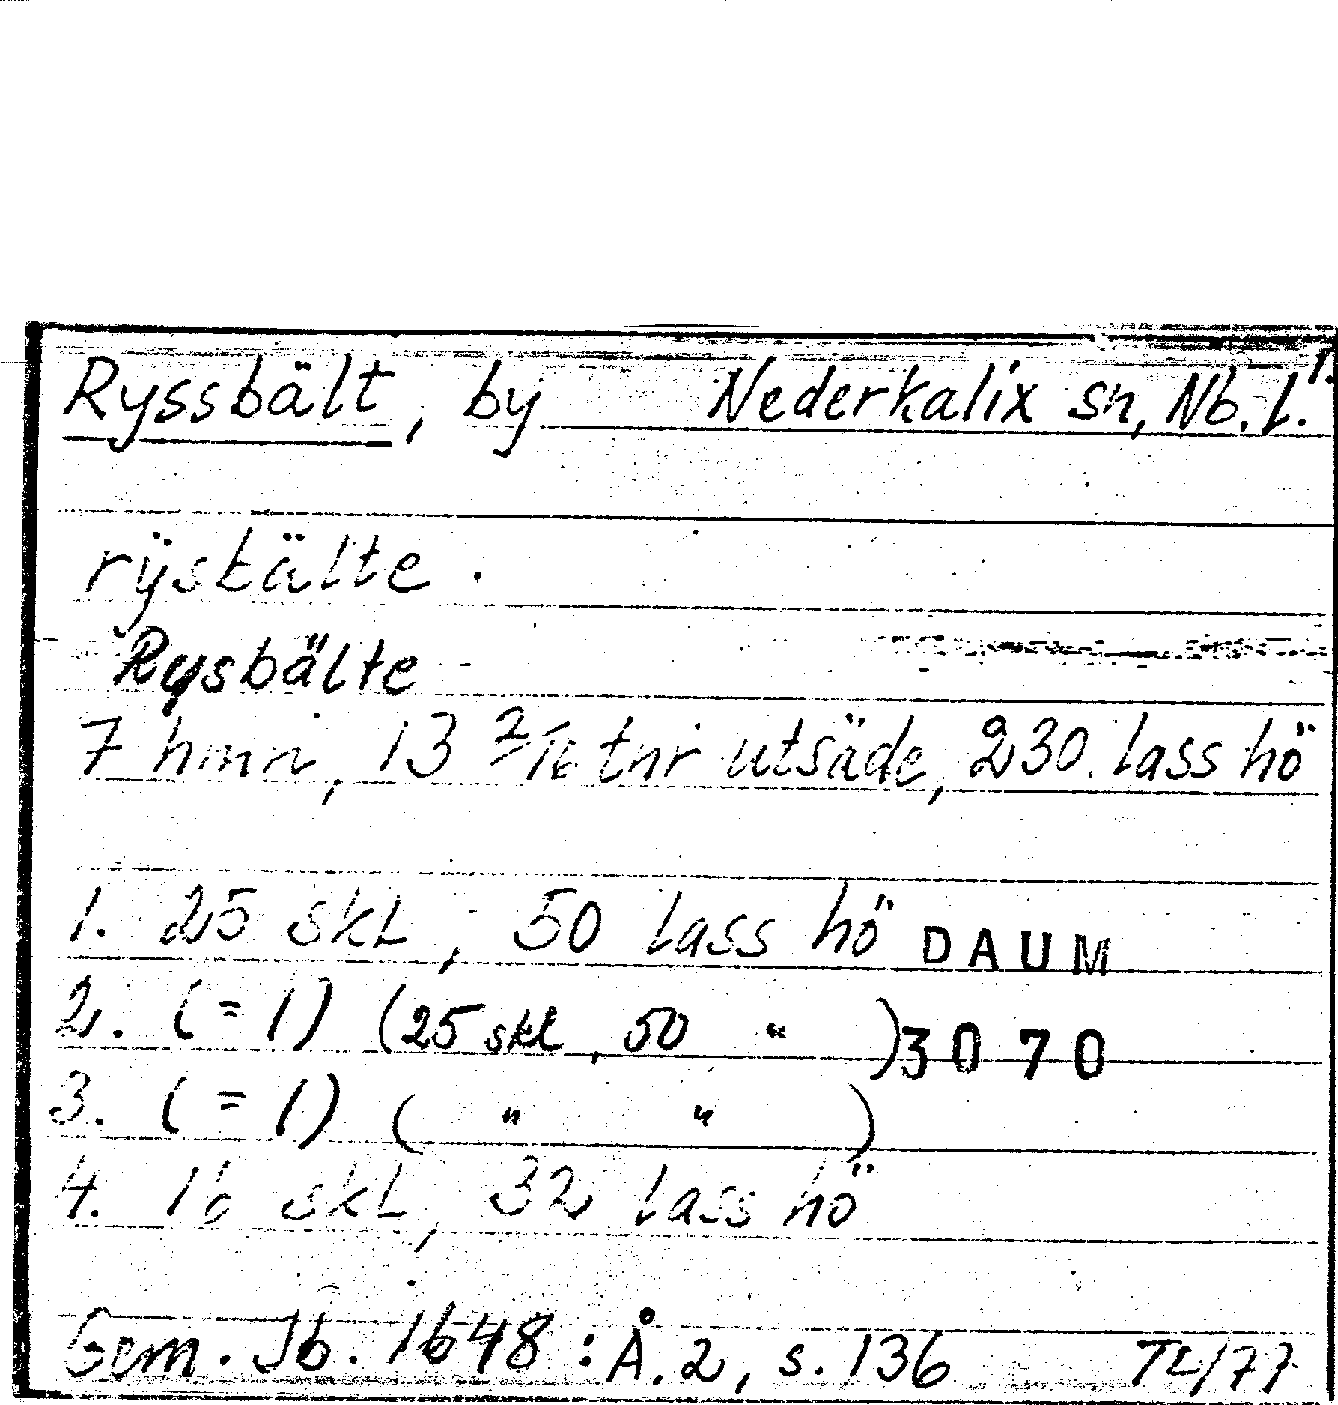 Ryssbält, by Nederkalix sn, Nb. l. 1.
rÿsbälte.
Rysbälte
7 hmn, 13 2/16 tnr utsäde, 230 lass hö
1. 25 skl, 50 lass hö DAUM
2. (=1) (25 skl, 50 ") 3070
3. (=1) ( " " )
4. 16 skl, 32 lass hö
Gem. Jb. 1648: Å.2, s. 136 TL/77